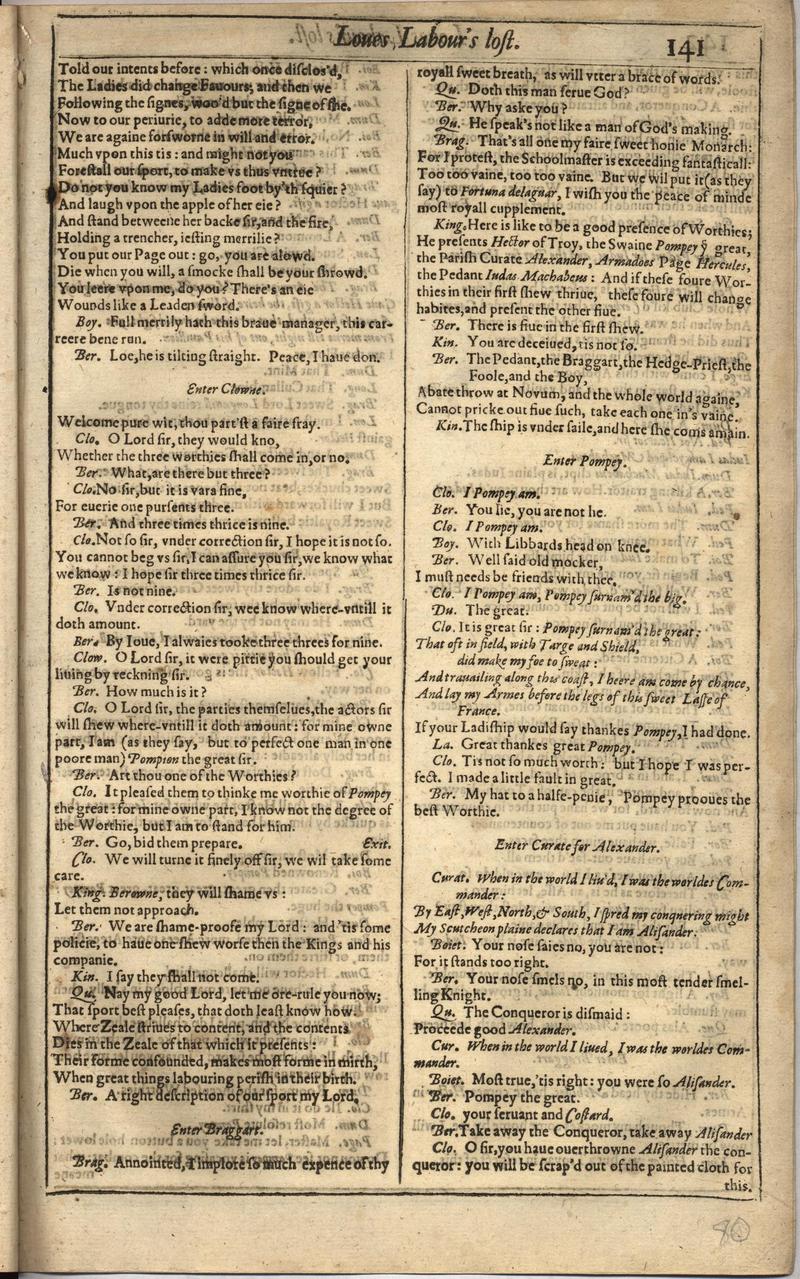 Loues Labour's lost.
141
Told our intents before: which once disclos'd,
The Ladies did change Fauours; and then we
Following the signes, woo'd but the signe of she.
Now to our periurie, to adde more terror,
We are againe forsworne in will and error.
Much vpon this tis: and might not you
Forestall our sport, to make vs thus vntrue?
Do not you know my Ladies foot by'th squier?
And laugh vpon the apple of her eie?
And stand betweene her backe sir, and the fire,
Holding a trencher, iesting merrilie?
You put our Page out: go, you are alowd.
Die when you will, a smocke shall be your shrowd.
You leere vpon me, do you? There's an eie
Wounds like a Leaden sword.
Boy. Full merrily hath this braue manager, this car-
reere bene run.
Ber. Loe, he is tilting straight. Peace, I haue don.
Enter Clowne.
Welcome pure wit, thou part'st a faire fray.
Clo. O Lord sir, they would kno,
Whether the three worthies shall come in, or no.
Ber. What, are there but three?
Clo. No sir, but it is vara fine,
For euerie one pursents three.
Ber. And three times thrice is nine.
Clo. Not so sir, vnder correction sir, I hope it is not so.
You cannot beg vs sir, I can assure you sir, we know what
we know: I hope sir three times thrice sir.
Ber. Is not nine.
Clo. Vnder correction sir, wee know where-vntill it
doth amount.
Ber. By Ioue, I alwaies tooke three threes for nine.
Clow. O Lord sir, it were pittie you should get your
liuing by reckning sir.
Ber. How much is it?
Clo. O Lord sir, the parties themselues, the actors sir
will shew where-vntill it doth amount: for mine owne
part, I am (as they say, but to perfect one man in one
poore man) Pompion the great sir.
Ber. Art thou one of the Worthies?
Clo. It pleased them to thinke me worthie of Pompey
the great: for mine owne part, I know not the degree of
the Worthie, but I am to stand for him.
Ber. Go, bid them prepare. Exit.
Clo. We will turne it finely off sir, we wil take some
care.
King. Berowne, they will shame vs:
Let them not approach.
Ber. We are shame-proofe my Lord: and 'tis some
policie, to haue one shew worse then the Kings and his
companie.
Kin. I say they shall not come.
Qu. Nay my good Lord, let me ore-rule you now;
That sport best pleases, that doth least know how.
Where Zeale striues to content, and the contents
Dies in the Zeale of that which it presents:
Their forme confounded, makes most forme in mirth,
When great things labouring perish in their birth.
Ber. A right description of our sport my Lord.
Enter Braggart.
Brag. Annointed, I implore so much expence of thy
royall sweet breath, as will vtter a brace of words.
Qu. Doth this man serue God?
Ber. Why aske you?
Qu. He speak's not like a man of God's making.
Brag. That's all one my faire sweet honie Monarch:
For I protest, the Schoolmaster is exceeding fantasticall:
Too too vaine, too too vaine. But we wil put it (as they
say) to Fortuna delaguar, I wish you the peace of minde
most royall cupplement.
King. Here is like to be a good presence of Worthies;
He presents Hector of Troy, the Swaine Pompey ye great,
the Parish Curate Alexander, Armadoes Page Hercules,
the Pedant Iudas Machabeus: And if these foure Wor-
thies in their first shew thriue, these foure will change
habites, and present the other fiue.
Ber. There is fiue in the first shew.
Kin. You are deceiued, tis not so.
Ber. The Pedant, the Braggart, the Hedge-Priest, the
Foole, and the Boy,
Abate throw at Novum, and the whole world againe,
Cannot pricke out fiue such, take each one in's vaine.
Kin. The ship is vnder saile, and here she coms amain.
Enter Pompey.
Clo. I Pompey am.
Ber. You lie, you are not he.
Clo. I Pompey am.
Boy. With Libbards head on knee.
Ber. Well said old mocker,
I must needs be friends with thee.
Clo. I Pompey am, Pompey surnam'd the big.
Du. The great.
Clo. It is great sir: Pompey surnam'd the great:
That oft in field, with Targe and Shield,
did make my foe to sweat:
And trauailing along this coast, I heere am come by chance,
And lay my Armes before the legs of this sweet Lasse of
France.
If your Ladiship would say thankes Pompey, I had done.
La. Great thankes great Pompey.
Clo. Tis not so much worth: but I hope I was per-
fect. I made a little fault in great.
Ber. My hat to a halfe-penie, Pompey prooues the
best Worthie.
Enter Curate for Alexander.
Curat. When in the world I liu'd, I was the worldes Com-
mander:
By East, West, North, & South, I spred my conquering might
My Scutcheon plaine declares that I am Alisander.
Boiet. Your nose saies no, you are not:
For it stands too right.
Ber. Your nose smels no, in this most tender smel-
ling Knight.
Qu. The Conqueror is dismaid:
Proceede good Alexander.
Cur. When in the world I liued, I was the worldes Com-
mander.
Boiet. Most true, 'tis right: you were so Alisander.
Ber. Pompey the great.
Clo. your seruant and Costard.
Ber. Take away the Conqueror, take away Alisander
Clo. O sir, you haue ouerthrowne Alisander the con-
queror: you will be scrap'd out of the painted cloth for
this.